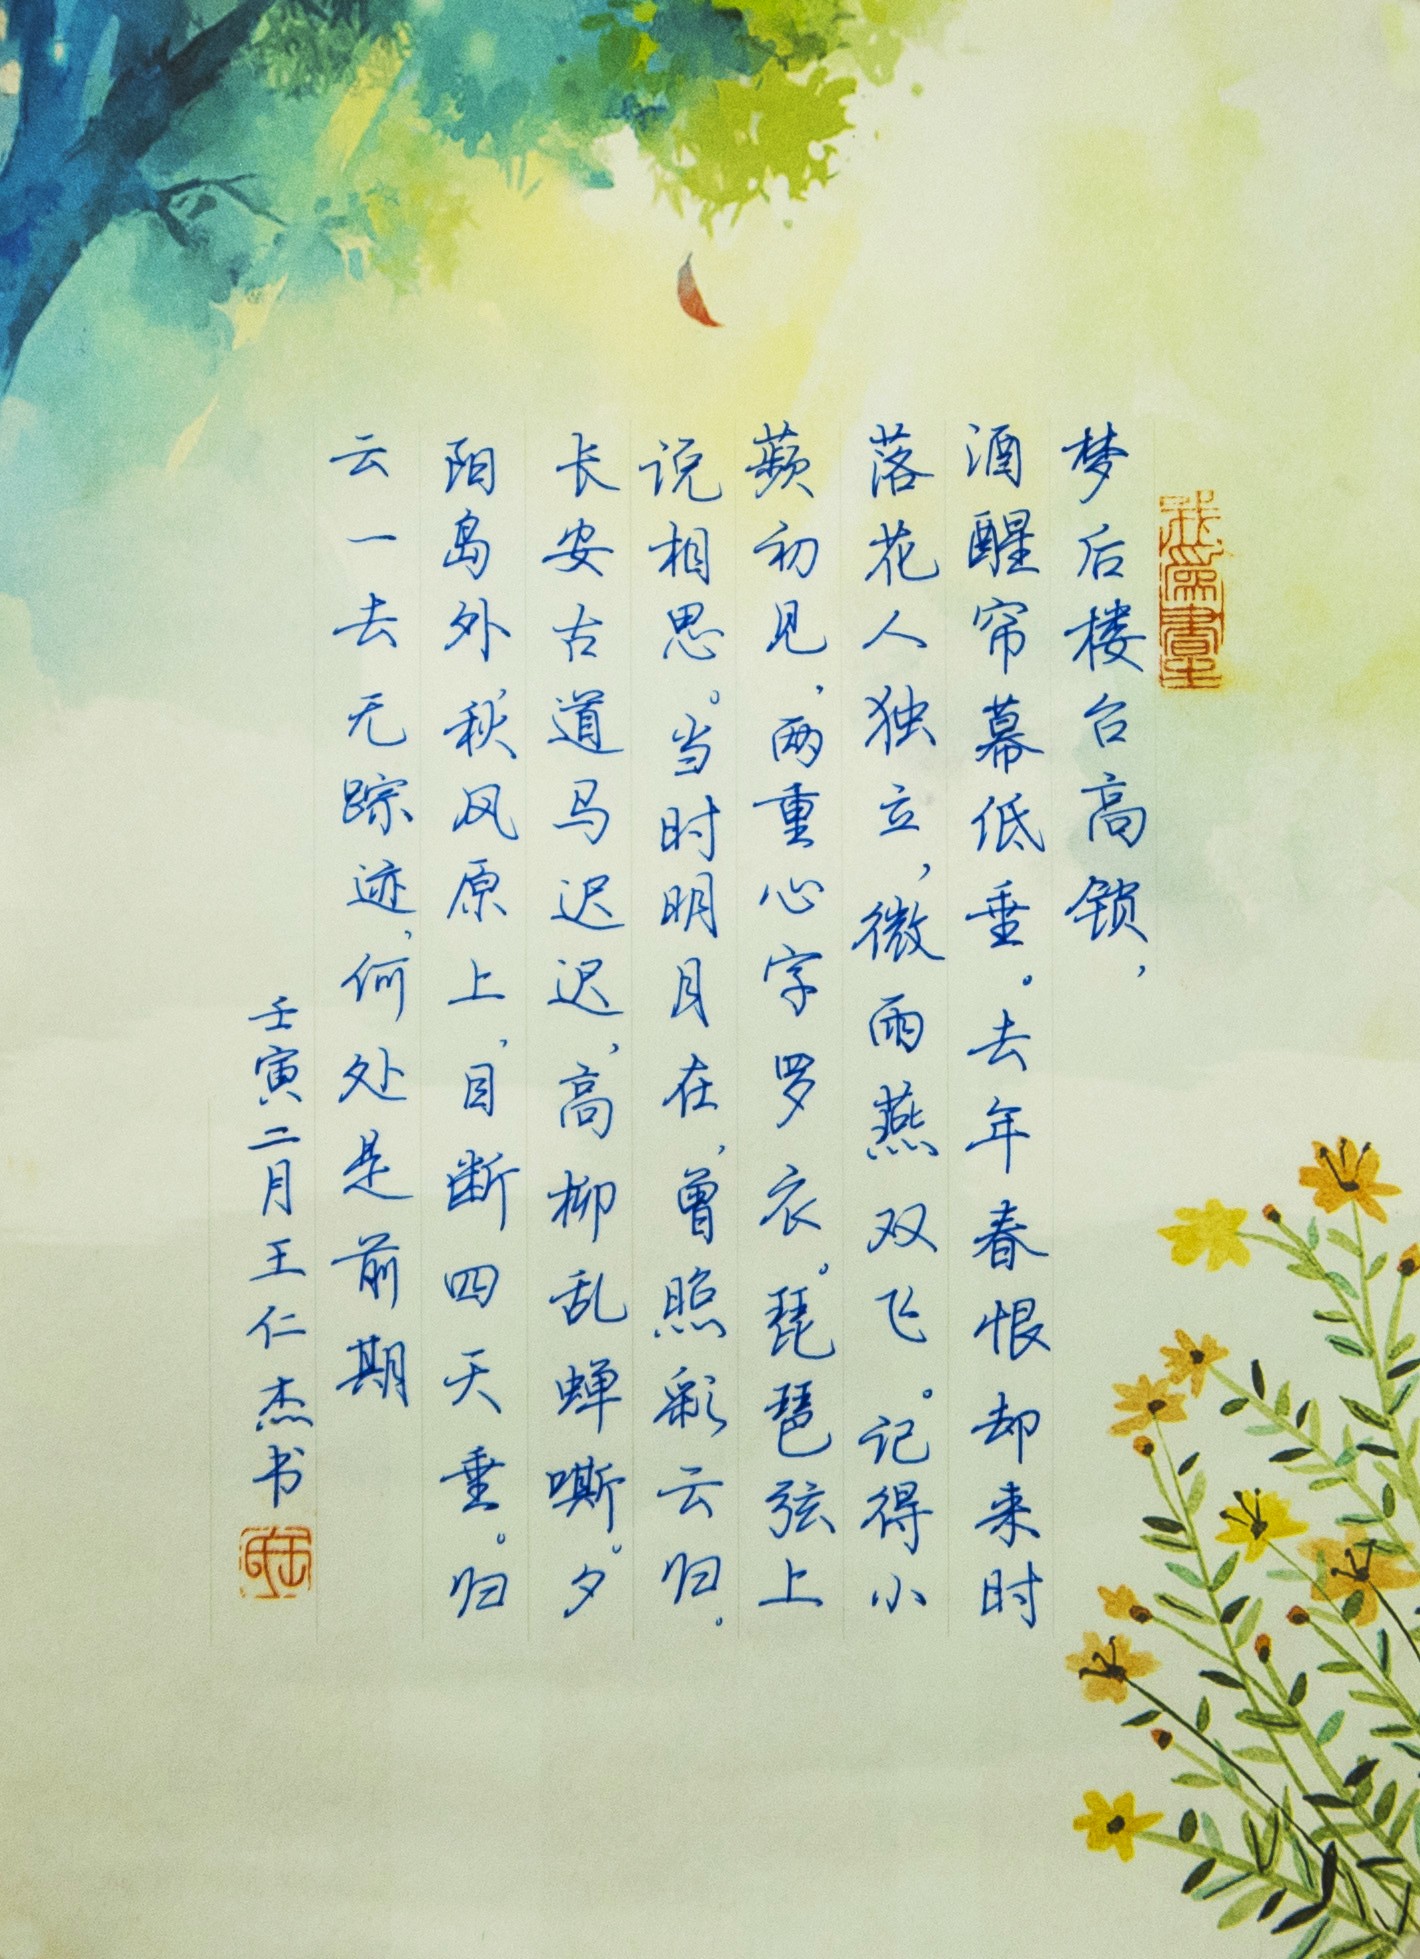 梦后楼台高锁，
酒醒帘幕低垂。去年春恨却来时
落花人独立，微雨燕双飞。记得小
蘋初见，两重心字罗衣。琵琶弦上
说相思。当时明月在，曾照彩云归。
长安古道马迟迟，高柳乱蝉嘶。夕
阳岛外秋风原上，目断四天垂。归
云一去无踪迹，何处是前期
壬寅二月王仁杰书